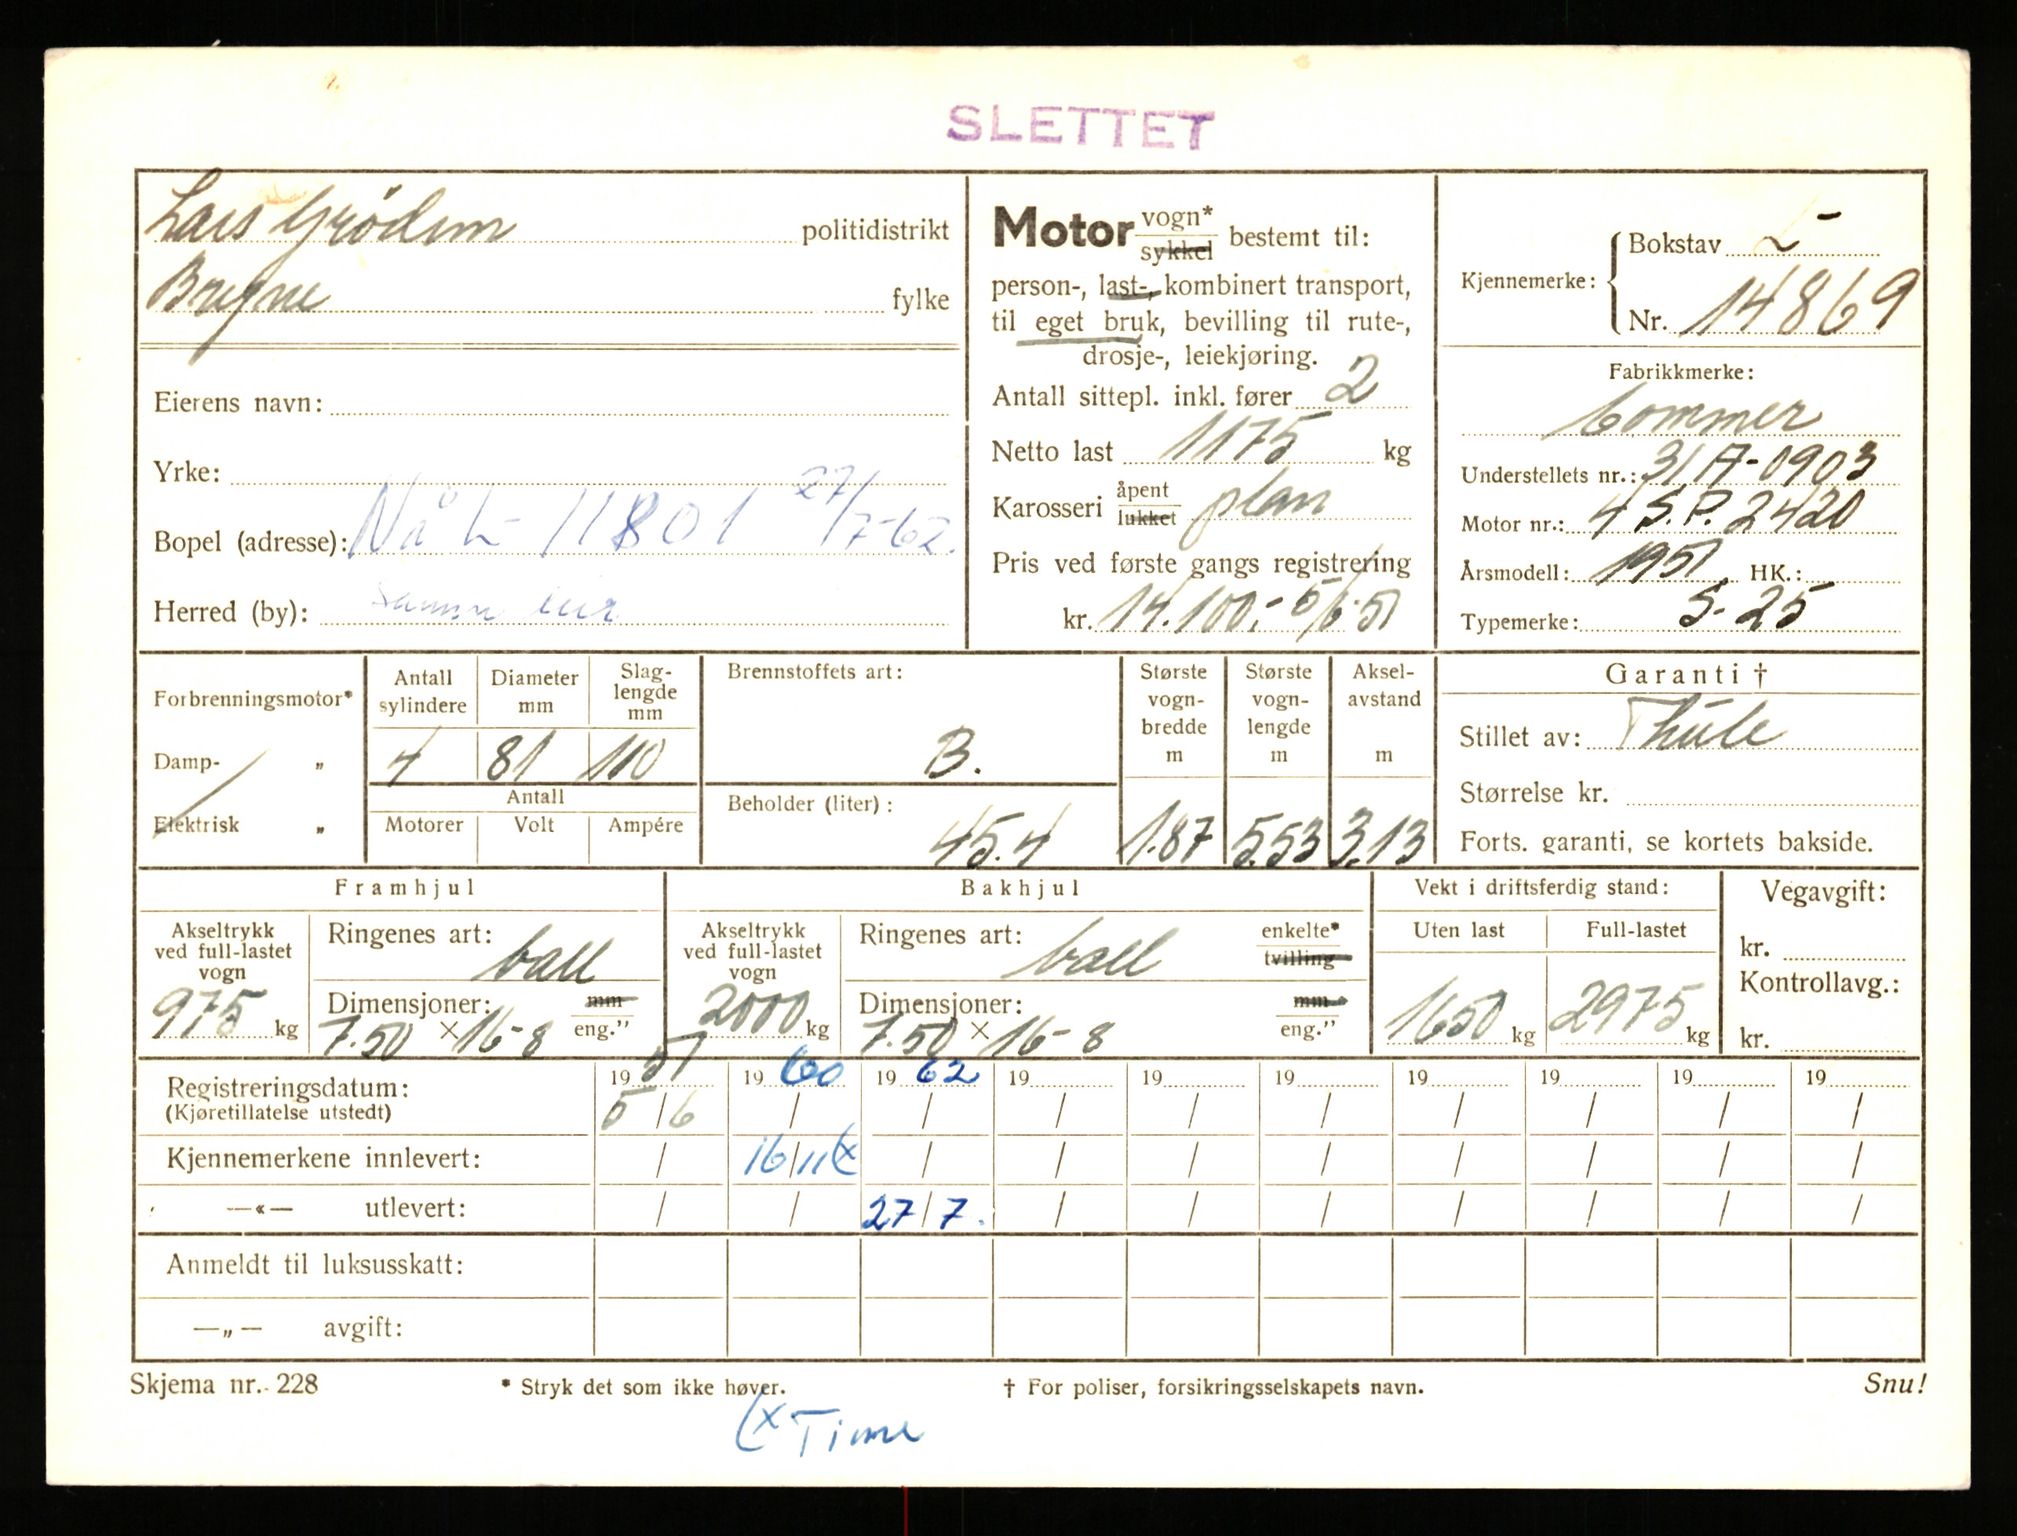 SLETTET
Lars Grødem politidistrikt
Bryne fylke
Eierens navn:
Yrke:
Bopel (adresse): Nå L- 11801 27/7-62.
Herred (by): samme eier
Motor vogn* sykkel bestemt til:
person-, last-, kombinert transport,
til eget bruk, bevilling til rute-,
drosje-, leiekjøring.
Antall sittepl. inkl. fører 2
Netto last 1175 kg
Karosseri åpent lukket plan
Pris ved første gangs registrering
kr. 14.100,- 5/6-51
Kjennemerke: Bokstav L-
Nr. 14869
Fabrikkmerke:
Commer
Understellets nr.: 31A-0903
Motor nr.: 4 S.P. 2420
Årsmodell: 1951 HK.:
Typemerke: S-25
Forbrenningsmotor*
Damp- „
Elektrisk „
Antall sylindere Diameter mm Slag-lengde mm
4 81 110
Antall
Motorer Volt Ampére
Brennstoffets art:
B.
Beholder (liter):
45.4
Største vogn-bredde m Største vogn-lengde m Aksel-avstand m
1.87 5.53 3.13
Garanti †
Stillet av: Thule
Størrelse kr.
Forts. garanti, se kortets bakside.
Framhjul
Akseltrykk ved full-lastet vogn
975 kg
Ringenes art: ball
Dimensjoner: mm
7.50 × 16-8 eng."
Bakhjul
Akseltrykk ved full-lastet vogn
2000 kg
Ringenes art: ball enkelte* tvilling
Dimensjoner: mm
7.50 × 16-8 eng."
Vekt i driftsferdig stand:
Uten last Full-lastet
1650 kg 2975 kg
Vegavgift:
kr.
Kontrollavg.:
kr.
Registreringsdatum: 19 51 19 60 19 62 19 19 19 19 19 19 19
(Kjøretillatelse utstedt) 5/6 / / / / / / / / /
Kjennemerkene innlevert: / 16/11 (x / / / / / / / /
—«— utlevert: / / 27/7. / / / / / / /
Anmeldt til luksusskatt:
—„— avgift:
Skjema nr. 228 * Stryk det som ikke høver. † For poliser, forsikringsselskapets navn. Snu!
(x Time